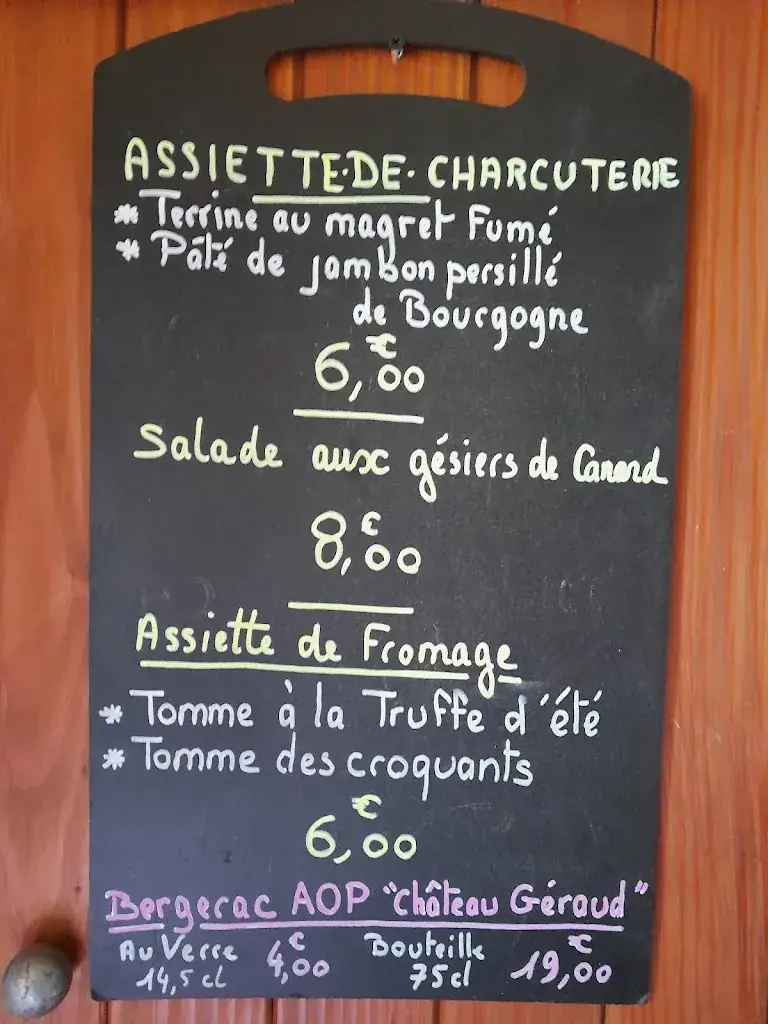 ASSIETTE·DE·CHARCUTERIE
* Terrine au magret Fumé
* Pâté de jambon persillé
de Bourgogne
6,00 €
Salade aux gésiers de Canard
8,00 €
Assiette de Fromage
* Tomme à la Truffe d'été
* Tomme des croquants
6,00 €
Bergerac AOP "Château Géraud"
Au Verre 14,5 cl 4,00 € Bouteille 75cl 19,00 €